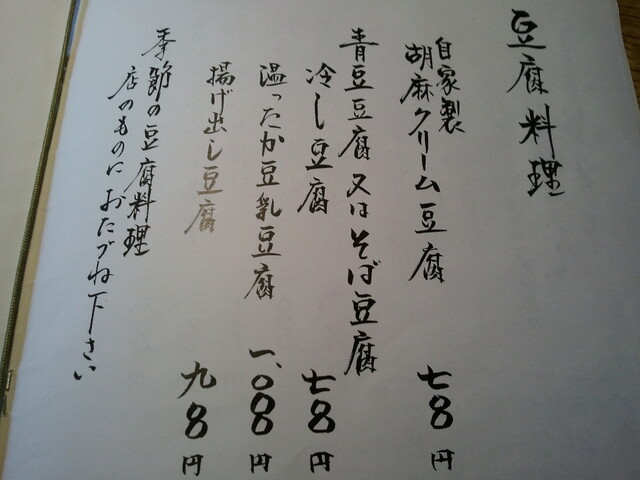 豆腐料理
自家製
胡麻クリーム豆腐 七〇〇円
青豆豆腐又はそば豆腐
冷し豆腐 七〇〇円
温ったか豆乳豆腐 一、〇〇〇円
揚げ出し豆腐 九〇〇円
季節の豆腐料理
店のものにおたづね下さい